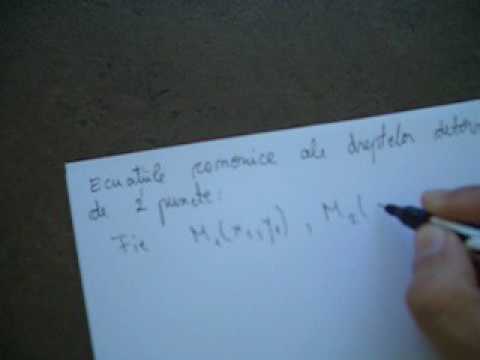 Ecuațiile canonice ale dreptelor determ
de 2 puncte:
Fie M₁(x₁,y₁), M₂(